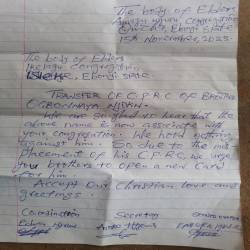 The Body of Elders
Congregation
Ebonyi State
15th November, 2023.
The Body of Elders
Congregation
Ebonyi State
TRANSFER OF C.P.R.C OF BROTHER
OGBONNAYA
We are so glad to hear that the
above name is now associate with
your congregation. We hold nothing
against him. So due to the mis-
placement of his C.P.R.C, we urge
you brothers to open a new card
for him.
Accept our Christian love and
greetings.
Coordinator Secretary